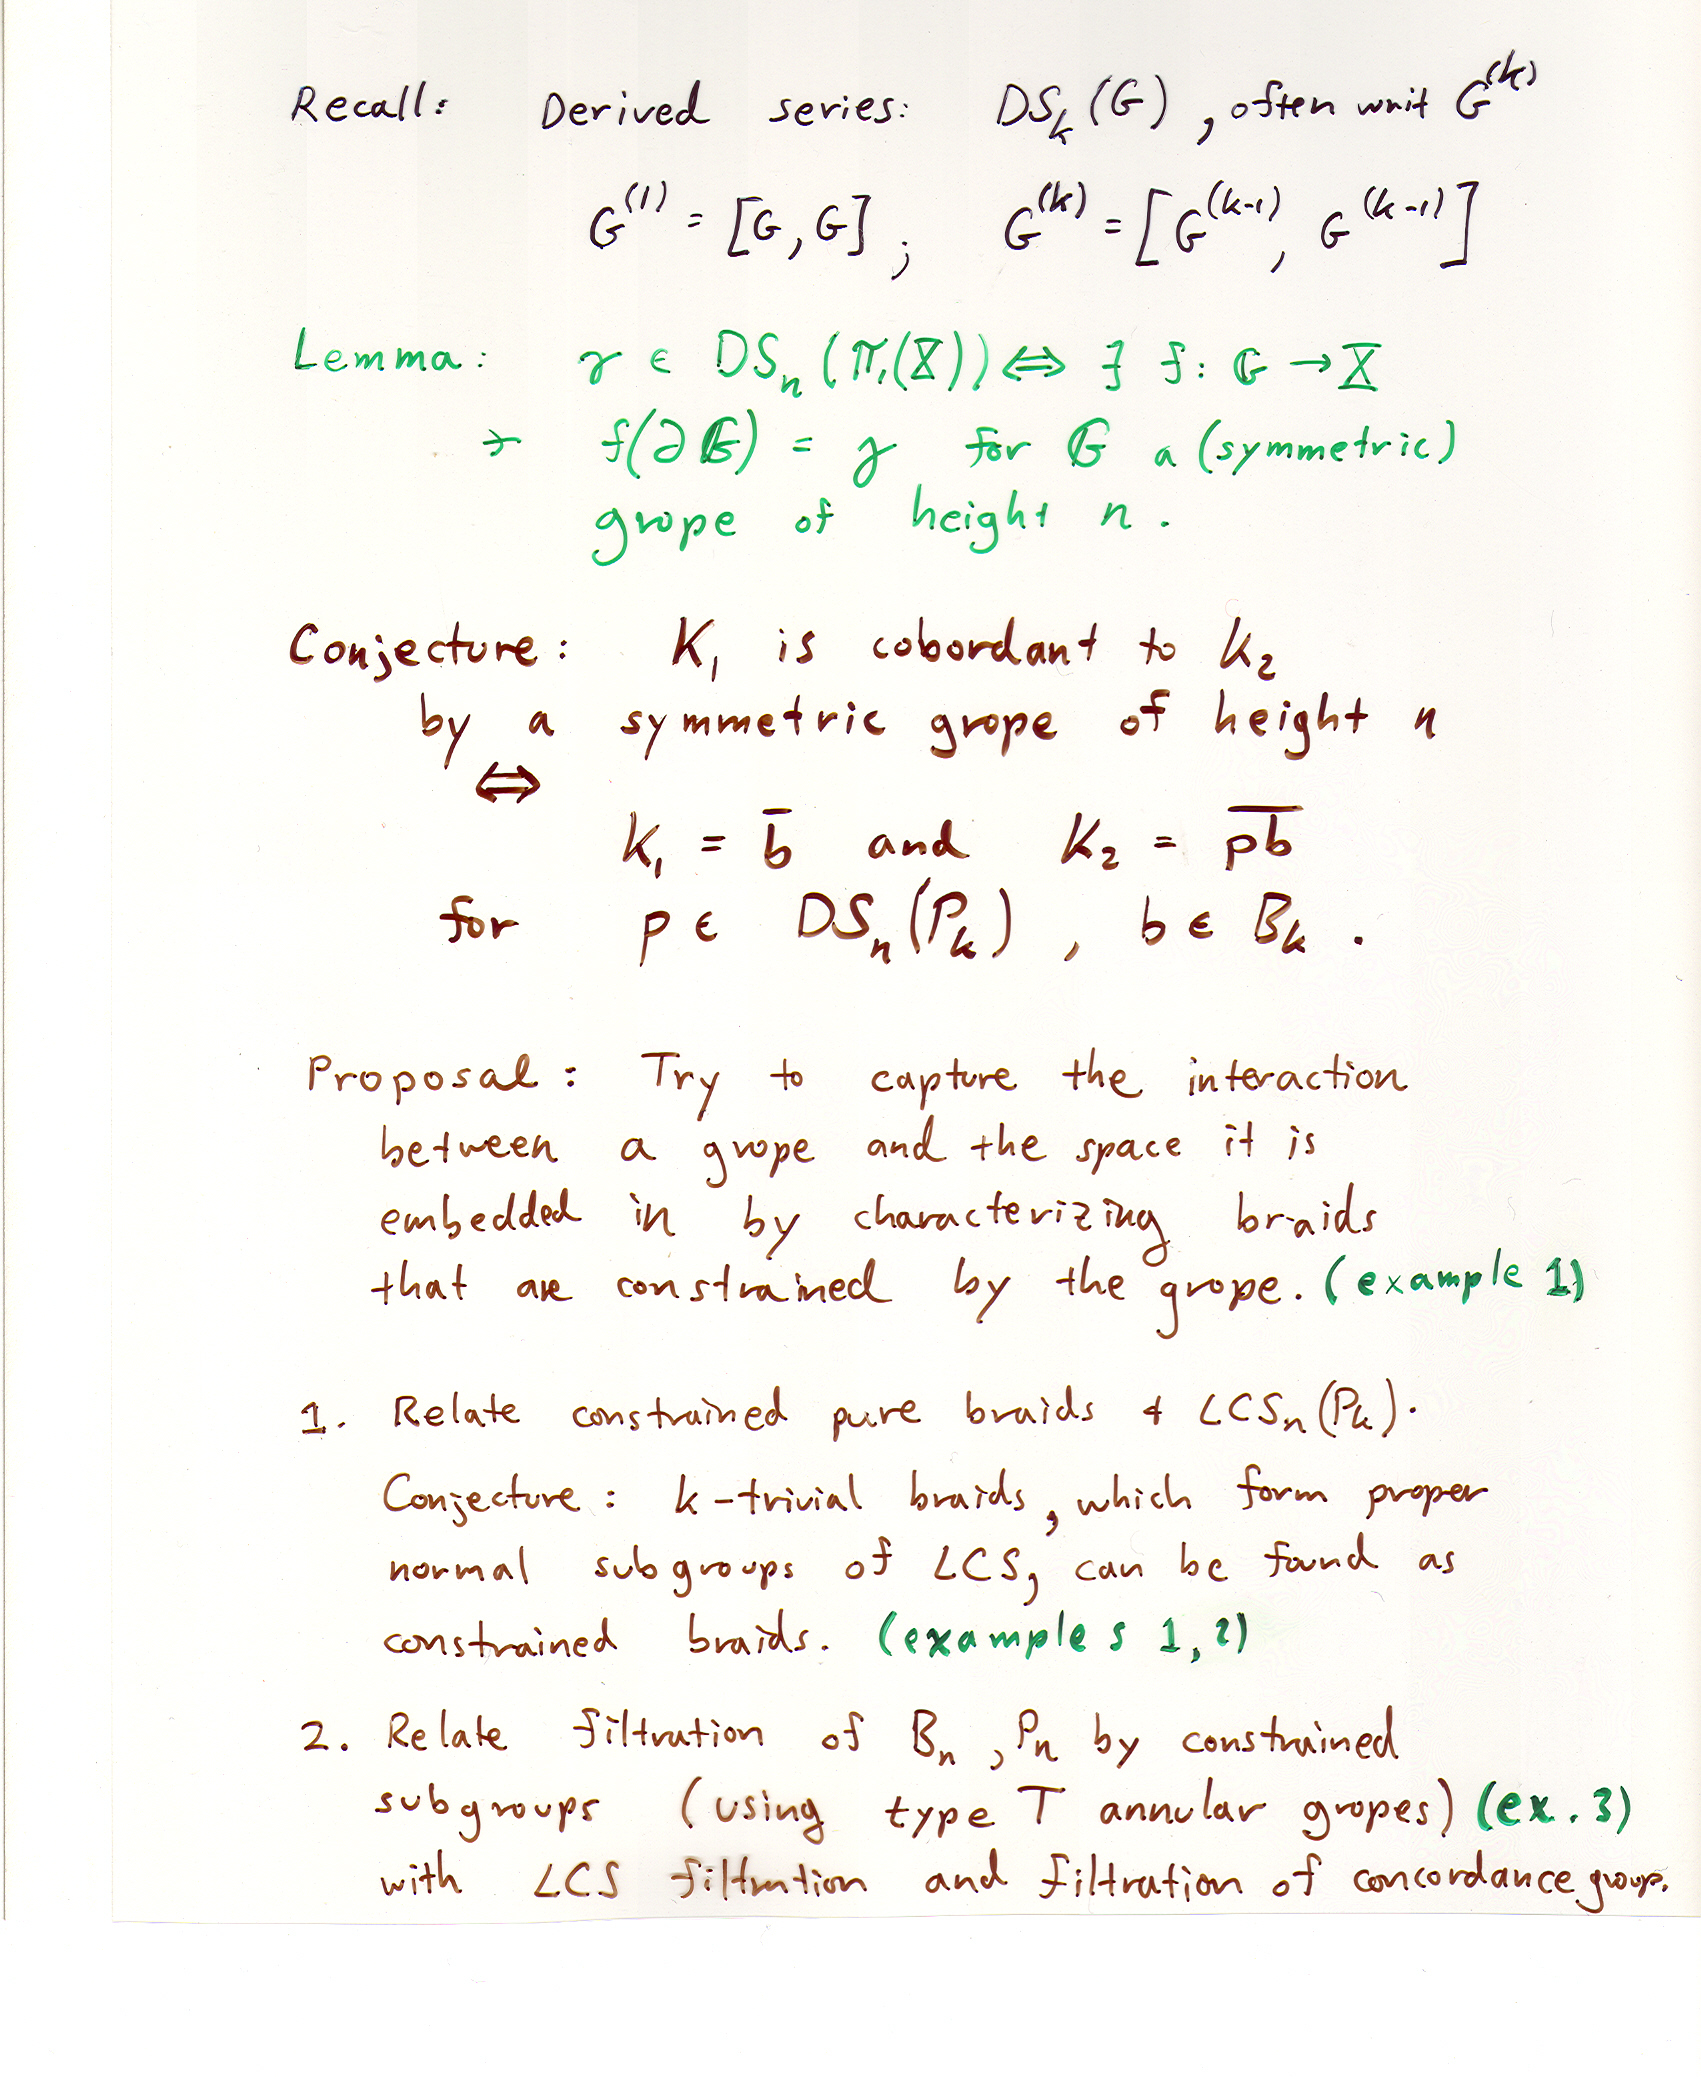 Recall: Derived series: DS_k(G), often writ G^(k)
G^(1) = [G, G]; G^(k) = [G^(k-1), G^(k-1)]
Lemma: γ ∈ DS_n(π_1(X)) ⇔ ∃ f: G → X
∋ f(∂G) = γ for G a (symmetric)
grope of height n.
Conjecture: K_1 is cobordant to K_2
by a symmetric grope of height n
⇔
K_1 = b̄ and K_2 = \overline{pb}
for p ∈ DS_n(P_k), b ∈ B_k.
Proposal: Try to capture the interaction
between a grope and the space it is
embedded in by characterizing braids
that are constrained by the grope. (example 1)
1. Relate constrained pure braids & LCS_n(P_k).
Conjecture: k-trivial braids, which form proper
normal subgroups of LCS, can be found as
constrained braids. (examples 1, 2)
2. Relate filtration of B_n, P_n by constrained
subgroups (using type T annular gropes) (ex. 3)
with LCS filtration and filtration of concordance group.